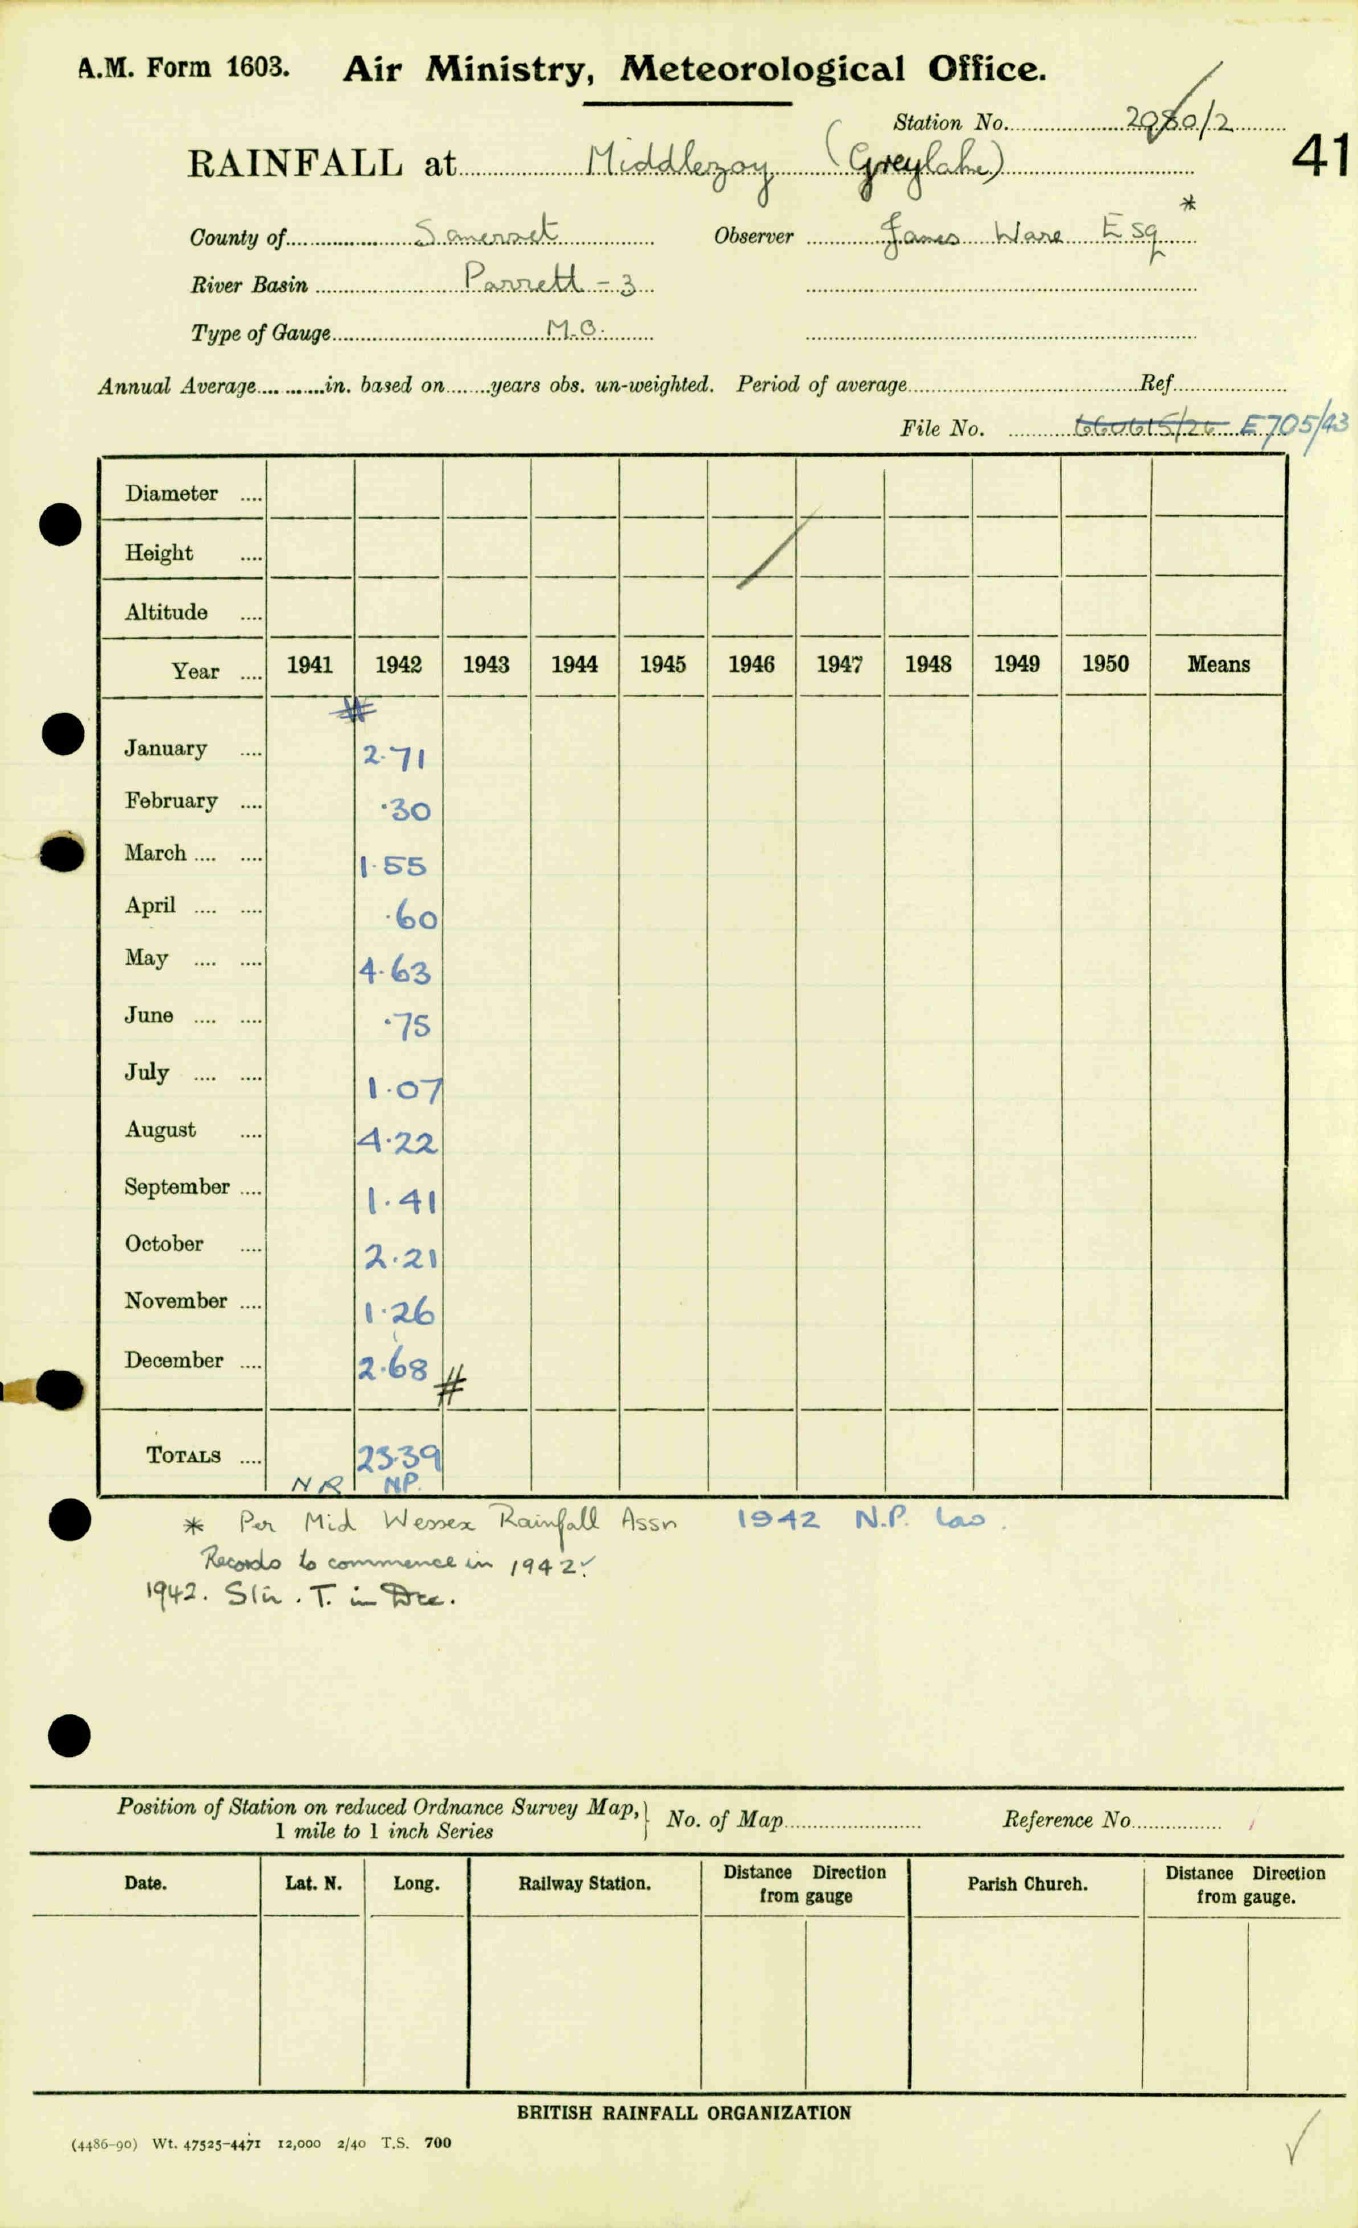 A.M. Form 1603. Air Ministry, Meteorological Office.
Station No. 2080/2
41
RAINFALL at Middlezoy (Greylake)
*
County of Somerset Observer James Ware Esq
River Basin Parrett - 3
Type of Gauge M.O.
Annual Average in. based on years obs. un-weighted. Period of average Ref
File No. 660615/26 E705/43
Diameter
Height
Altitude
Year 1941 1942 1943 1944 1945 1946 1947 1948 1949 1950 Means
#
January 2.71
February .30
March 1.55
April .60
May 4.63
June .75
July 1.07
August 4.22
September 1.41
October 2.21
November 1.26
December 2.68 #
TOTALS 23.39
NR NP.
* Per Mid Wessex Rainfall Assn 1942 N.P.
Records to commence in 1942.
1942. T. in Dec.
Position of Station on reduced Ordnance Survey Map, } No. of Map Reference No.
1 mile to 1 inch Series
Date. Lat. N. Long. Railway Station. Distance Direction from gauge Parish Church. Distance Direction from gauge.
BRITISH RAINFALL ORGANIZATION
(4486-90) Wt. 47525-4471 12,000 2/40 T.S. 700